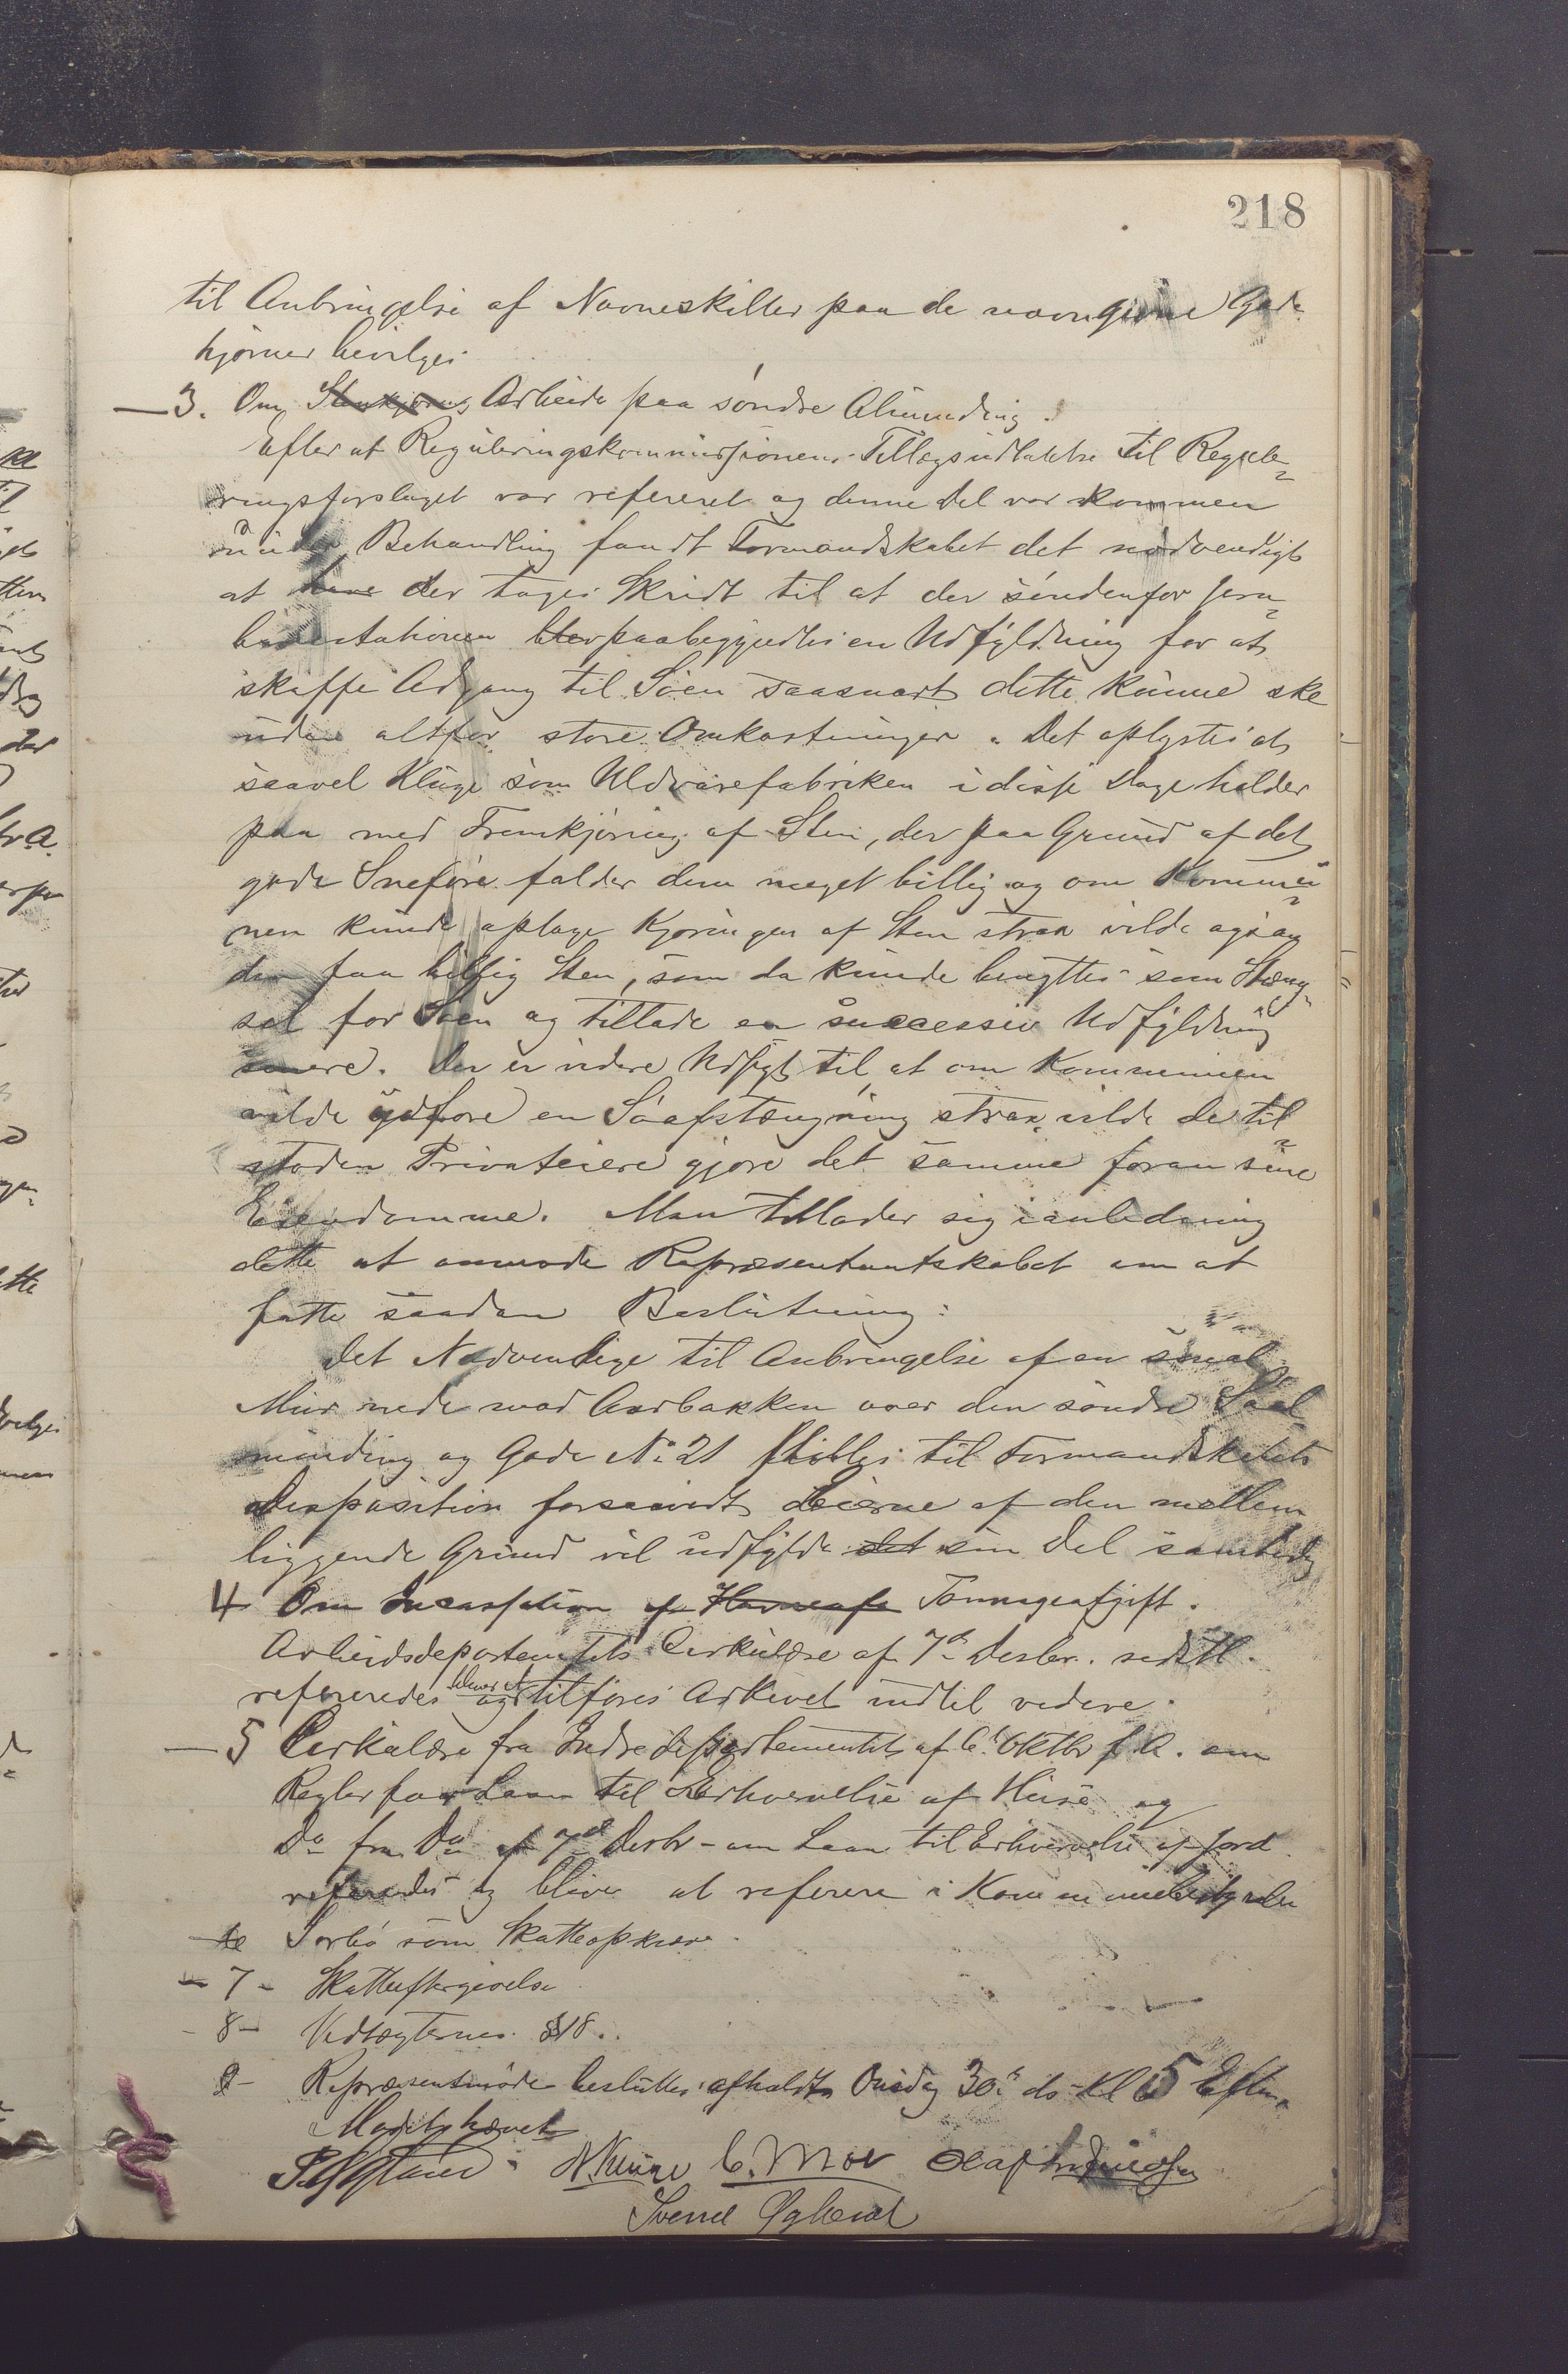 218
til Anbringelse af Navneskilter paa de navngivne Gade
hjørner bevilges.
3. Om Stenkjøring Arbeide paa søndre Almending.
Efter at Reguleringskommissionens Tillægsudtalelse til Regule-
ringsforslaget var refereret og denne Del var kommen
under Behandling fandt Formandskabet det nødvendigt
at der toges Skridt til at der søndenfor Jern-
banestationen blev paabegyndtes en Udfyldning for at
skaffe Adgang til Søen saasnart dette kunne ske
uden altfor store Omkostninger. Det oplystes at
saavel Kluge som Uldvarefabriken i disse Dage holder
paa med Fremkjøring af Sten, der paa Grund af det
gode Sneføre falder dem meget billig og om Kommu-
nen kunde optage Kjøringen af Sten strax vilde ogsaa
den faa billig Sten, som da kunde benyttes som Stæng-
sel for Søen og tillade en successiv Udfyldning
senere. Der er videre Udsigt til at om Kommunen
vilde udføre en Søafstængning strax, vilde de til-
stødende Privateiere gjøre det samme foran sine
Eiendomme. Man tillader sig i anledning
dette at anmode Repræsentantskabet om at
fatte saadan Beslutning:
Det Nødvendige til Anbringelse af en smal
Mur nede mod Aarbakken over den søndre Søal
munding og Gade No. 21 stilles til Formandskabets
Disposition forsaavidt Eierne af den mellem
liggende Grund vil udfylde det sin Del samtidig
4 Om Incassation af Havneafg Tonnageafgift.
Arbeidsdepartemtets Cirkulære af 7de Desbr. sidstl.
refereredes og tilføres Arkivet indtil videre.
5 Cirkulære fra Indredepartementet af 6. Oktbr f. A. om
Regler for Laan til Erhvervelse af Huse og
Do fra Do af 7de Desbr - om Laan til Erhvervelse af Jord
refereredes og bliver at referere i Kommunebestyrelsen
6 Sørbø som Skatteopkræver.
- 7 - Skatteeftergivelse
- 8 - Vedtægternes § 18..
9 - Repræsentmøde besluttes afholdt Onsdag 30te ds Kl 5 Efterm.
Mødet hævet
N. Kluge C. Moe Olaf
Svend